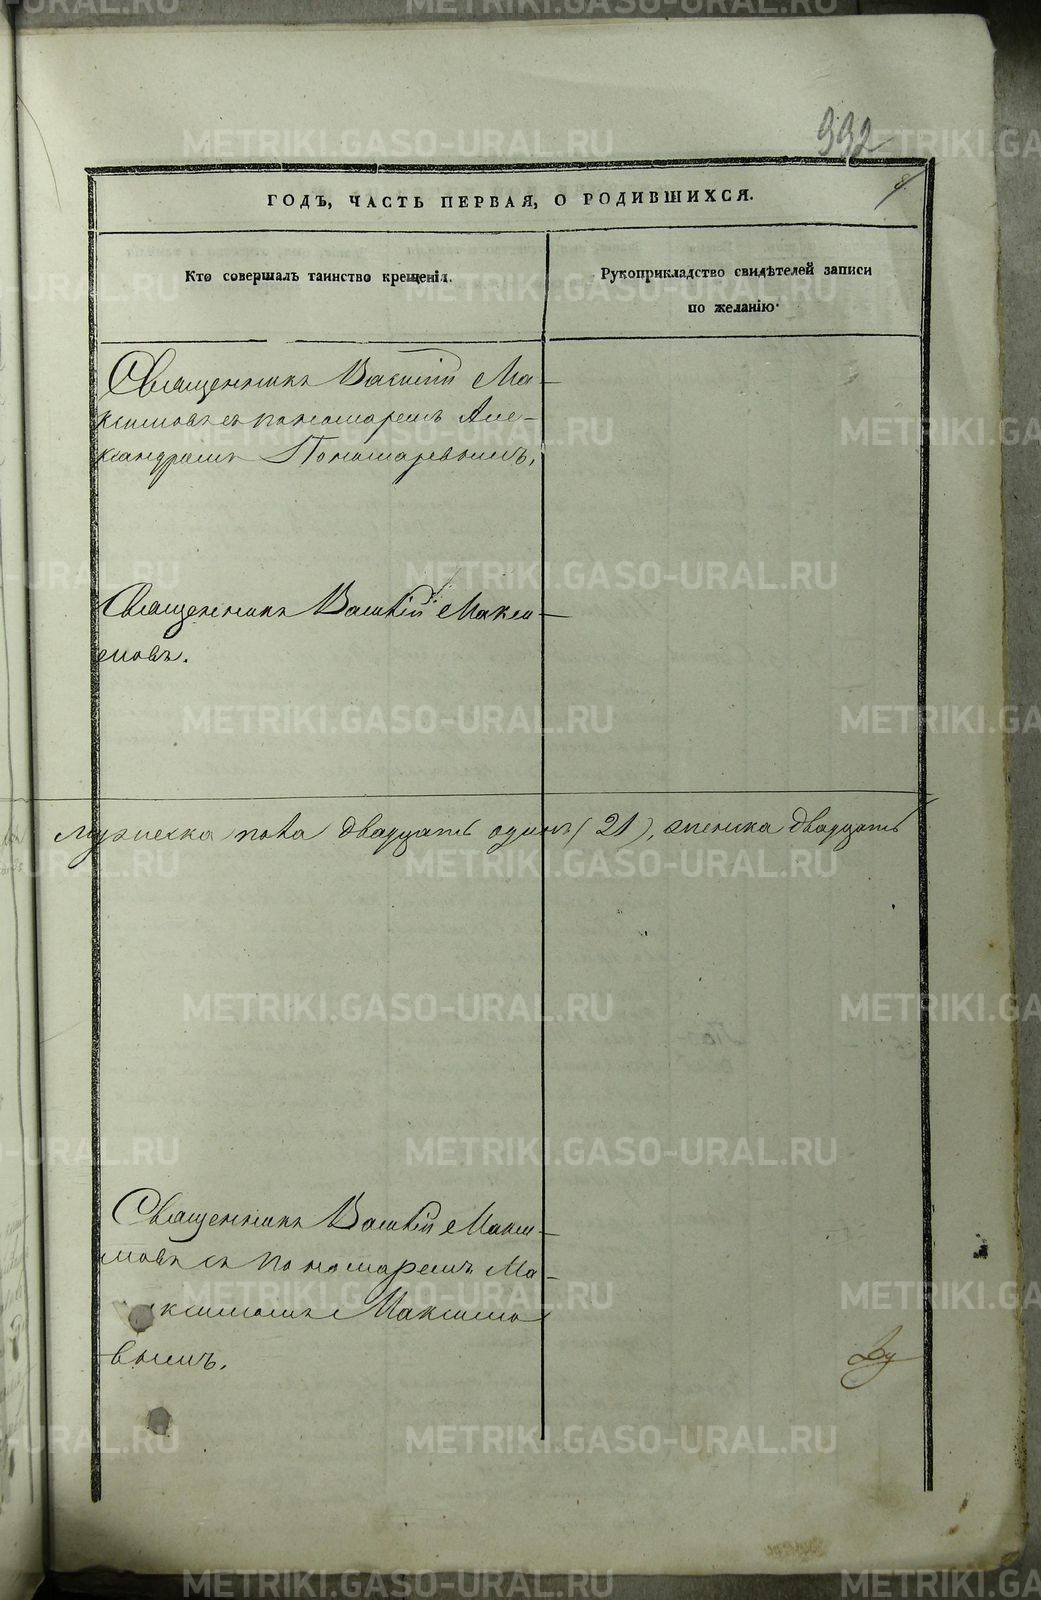 992
ГОДЪ, ЧАСТЬ ПЕРВАЯ, О РОДИВШИХСЯ.
Кто совершалъ таинство крещенія.
Рукоприкладство свидѣтелей записи
по желанію.
Священникъ Василій Ма-
ксимовъ съ пономаремъ Але-
ксандромъ Пономаревымъ,
Священникъ Василій Макси-
мовъ.
Мужеска пола двадцать одинъ (21), женска двадцать
Священникъ Василій Макси-
мовъ съ пономаремъ Ма-
ксимомъ Максимо
вымъ.
METRIKI.GASO-URAL.RU